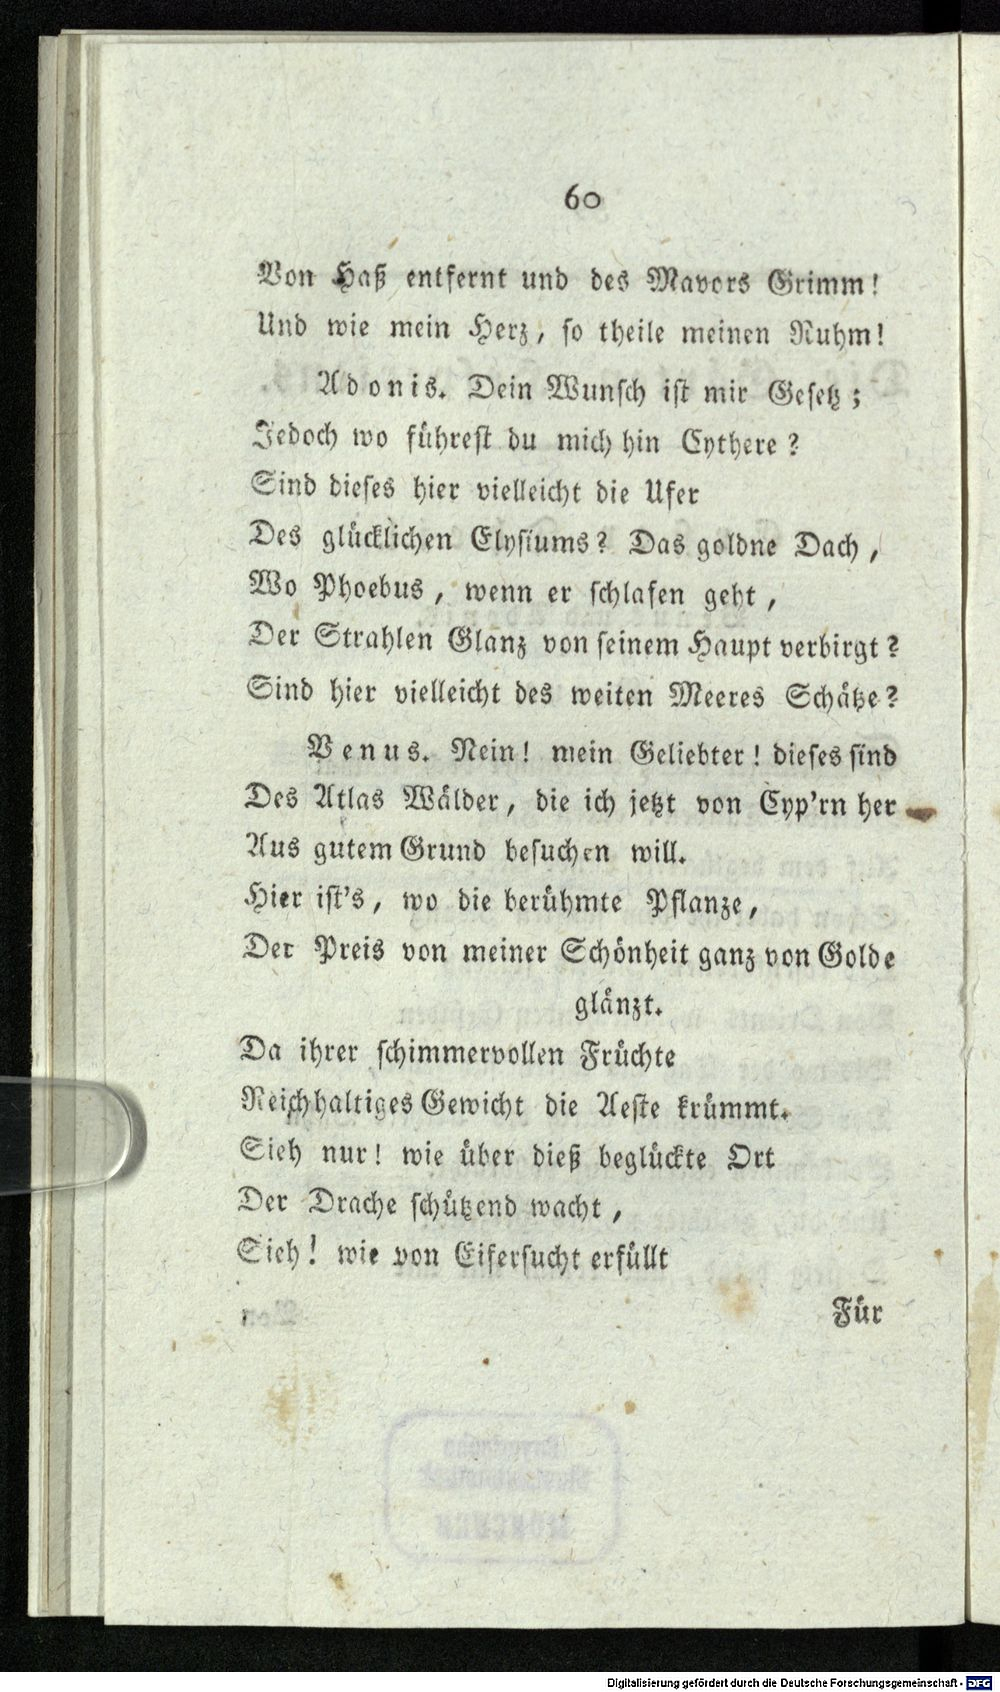 60
Von Haß entfernt und des Mavors Grimm!
Und wie mein Herz, so theile meinen Ruhm!
Adonis. Dein Wunsch ist mir Gesetz;
Jedoch wo führest du mich hin Cythere?
Sind dieses hier vielleicht die Ufer
Des glücklichen Elysiums? Das goldne Dach,
Wo Phoebus, wenn er schlafen geht,
Der Strahlen Glanz von seinem Haupt verbirgt?
Sind hier vielleicht des weiten Meeres Schätze?
Venus. Nein! mein Geliebter! dieses sind
Des Atlas Wälder, die ich jetzt von Cyp'rn her
Aus gutem Grund besuchen will.
Hier ist's, wo die berühmte Pflanze,
Der Preis von meiner Schönheit ganz von Golde
glänzt.
Da ihrer schimmervollen Früchte
Reichhaltiges Gewicht die Aeste krümmt.
Sieh nur! wie über dieß beglückte Ort
Der Drache schützend wacht,
Sieh! wie von Eifersucht erfüllt
Für
Digitalisierung gefördert durch die Deutsche Forschungsgemeinschaft - DFG